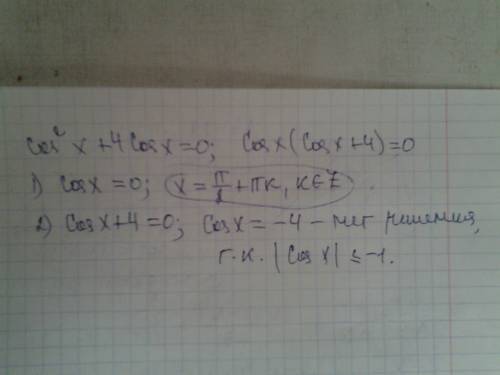 cos² x + 4 cos x = 0; cos x (cos x + 4) = 0
1) cos x = 0; x = π/2 + πk, k ∈ Z.
2) cos x + 4 = 0; cos x = -4 – нет решения,
т.к. |cos x| ≤ -1.